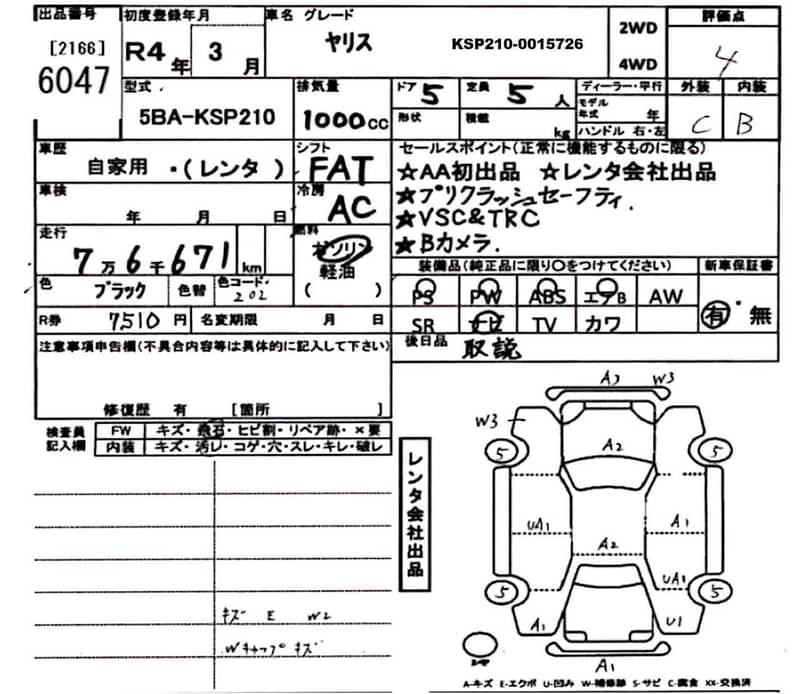 出品番号 初度登録年月 車名 グレード 2WD 評価点
[2166] R4年 3月 ヤリス KSP210-0015726 4WD 4
6047
型式 排気量 ドア 5 定員 5人 ディーラー・平行 外装 内装
5BA-KSP210 1000cc 形状 積載 kg モデル年式 年 C B
ハンドル 右・左
車歴 シフト セールスポイント(正常に機能するものに限る)
自家用 ・(レンタ ) FAT ☆AA初出品 ☆レンタ会社出品
車検 冷房 ★プリクラッシュセーフティ.
年 月 日 AC ★VSC&TRC
走行 燃料 ★Bカメラ.
7万6千671km ガソリン 装備品(純正品に限り〇をつけてください) 新車保証書
色 ブラック 色替 色コード 202 軽油 PS PW ABS エアB AW 有・無
( )
R券 7510円 名変期限 月 日 SR ナビ TV カワ
注意事項申告欄(不具合内容等は具体的に記入して下さい) 後日品 取説
修復歴 有 [箇所 ]
検査員記入欄 FW キズ・飛石・ヒビ割・リペア跡・×要
内装 キズ・汚レ・コゲ・穴・スレ・キレ・破レ
レンタ会社出品
A3 W3
W3
A2
5 5
UA1 A1
A2
UA1
5 5
A1 U1
A1
キズ E W2
Wキャップキズ
A-キズ E-エクボ U-凹み W-補修跡 S-サビ C-腐食 XX-交換済